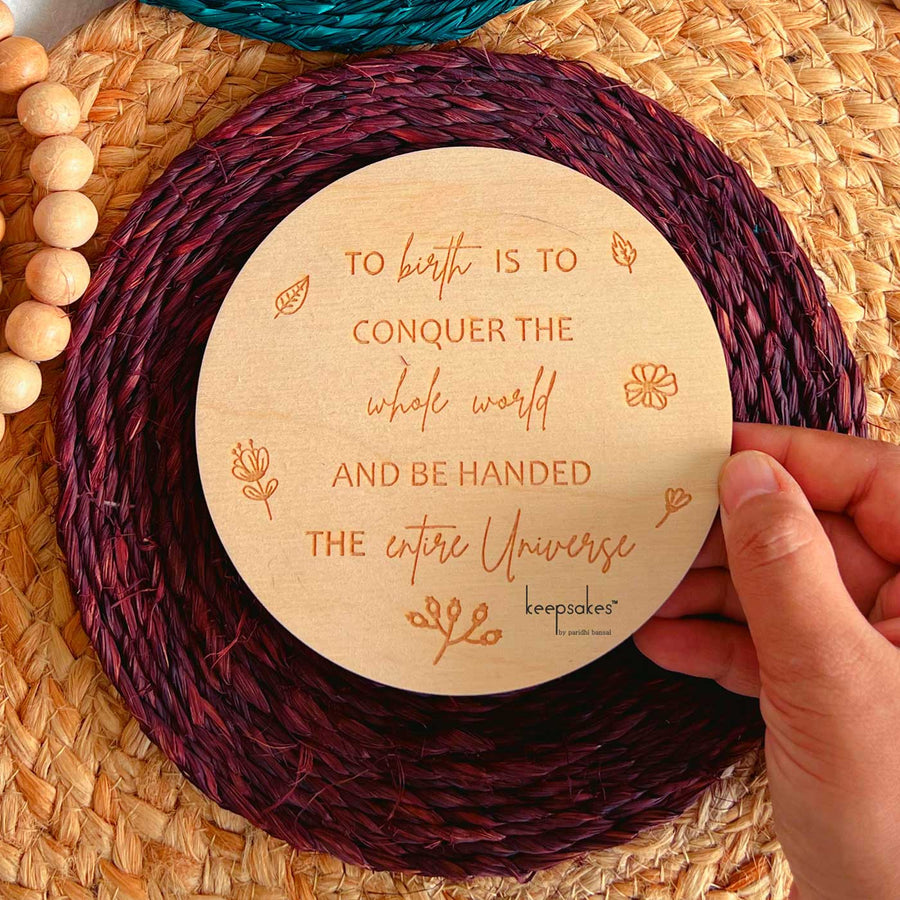 TO birth IS TO
CONQUER THE
whole world
AND BE HANDED
THE entire Universe
keepsakes™
by paridhi bansal